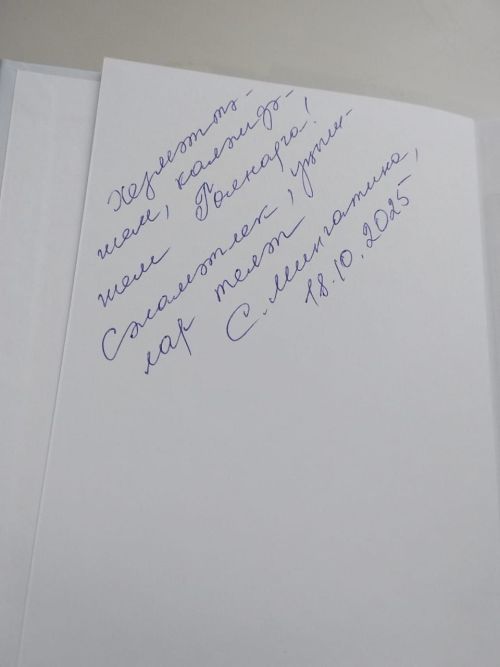 Хезмәттә-
шем, каләмдә-
шем Гөлнарга!
Сәламәтлек, уңыш-
лар теләп
С. Мингатина,
18.10.2025